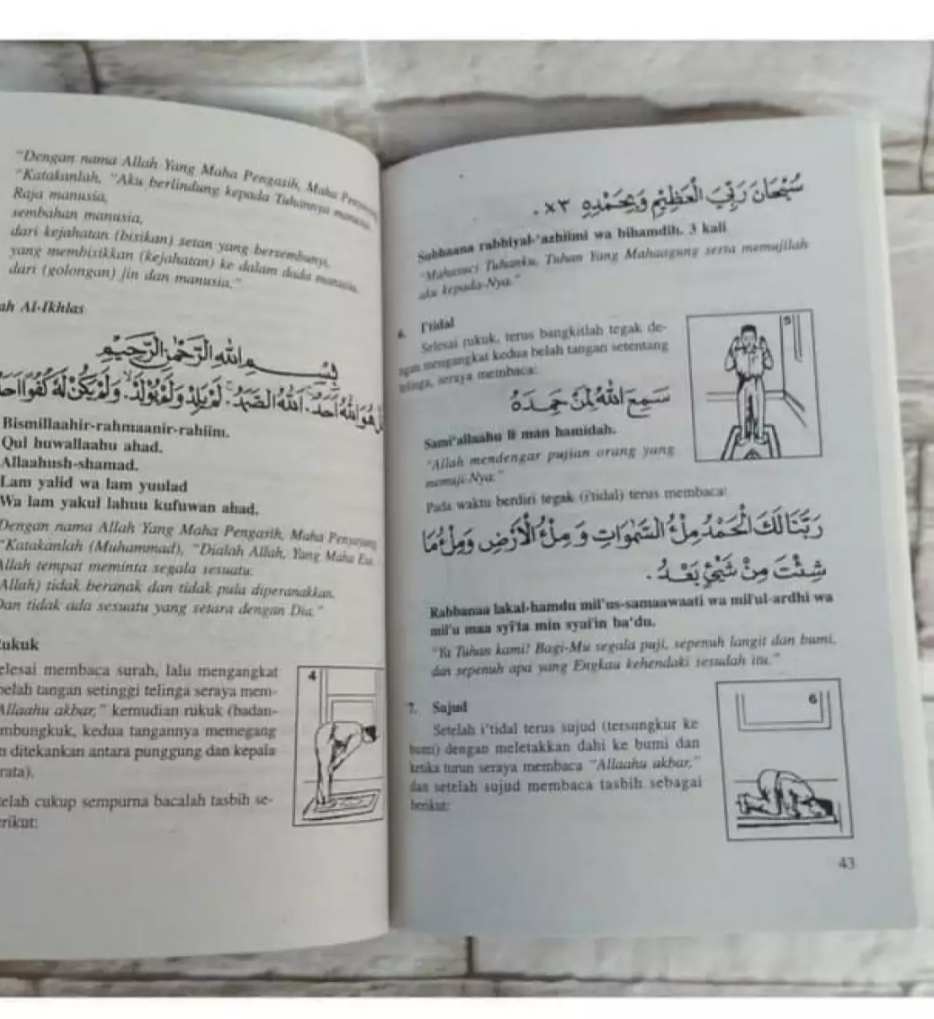 "Dengan nama Allah Yang Maha Pengasih, Maha
"Katakanlah, "Aku berlindung kepada Tuhannya manusia,
Raja manusia,
sembahan manusia,
dari kejahatan (bisikan) setan yang bersembunyi,
yang membisikkan (kejahatan) ke dalam dada manusia,
dari (golongan) jin dan manusia."
ah Al-Ikhlas
بِسْمِ اللهِ الرَّحْمٰنِ الرَّحِيْمِ
هُوَ اللهُ اَحَدٌ. اَللهُ الصَّمَدُ. لَمْ يَلِدْ وَلَمْ يُوْلَدْ. وَلَمْ يَكُنْ لَهُ كُفُوًا اَحَدٌ
Bismillaahir-rahmaanir-rahiim.
Qul huwallaahu ahad.
Allaahush-shamad.
Lam yalid wa lam yuulad
Wa lam yakul lahuu kufuwan ahad.
Dengan nama Allah Yang Maha Pengasih, Maha Penyayang
"Katakanlah (Muhammad), "Dialah Allah, Yang Maha Esa.
Allah tempat meminta segala sesuatu.
Allah) tidak beranak dan tidak pula diperanakkan.
Dan tidak ada sesuatu yang setara dengan Dia."
ukuk
elesai membaca surah, lalu mengangkat
belah tangan setinggi telinga seraya mem-
Allaahu akbar," kemudian rukuk (badan-
mbungkuk, kedua tangannya memegang
n ditekankan antara punggung dan kepala
rata).
telah cukup sempurna bacalah tasbih se-
erikut:
4
سُبْحَانَ رَبِّيَ الْعَظِيْمِ وَبِحَمْدِهِ ×٣ .
Subhaana rabbiyal-'azhiimi wa bihamdih. 3 kali
"Mahasuci Tuhanku, Tuhan Yang Mahaagung serta memujilah
aku kepada-Nya."
6. I'tidal
Selesai rukuk, terus bangkitlah tegak de-
ngan mengangkat kedua belah tangan setentang
telinga, seraya membaca:
5
سَمِعَ اللهُ لِمَنْ حَمِدَهُ
Sami'allaahu li man hamidah.
"Allah mendengar pujian orang yang
memuji-Nya."
Pada waktu berdiri tegak (i'tidal) terus membaca:
رَبَّنَا لَكَ الْحَمْدُ مِلْءُ السَّمٰوَاتِ وَمِلْءُ الْأَرْضِ وَمِلْءُ مَا
شِئْتَ مِنْ شَيْءٍ بَعْدُ .
Rabbanaa lakal-hamdu mil'us-samaawaati wa mil'ul-ardhi wa
mil'u maa syi'ta min syai'in ba'du.
"Ya Tuhan kami! Bagi-Mu segala puji, sepenuh langit dan bumi,
dan sepenuh apa yang Engkau kehendaki sesudah itu."
7. Sujud
Setelah i'tidal terus sujud (tersungkur ke
bumi) dengan meletakkan dahi ke bumi dan
ketika turun seraya membaca "Allaahu akbar,"
dan setelah sujud membaca tasbih sebagai
berikut:
6
43